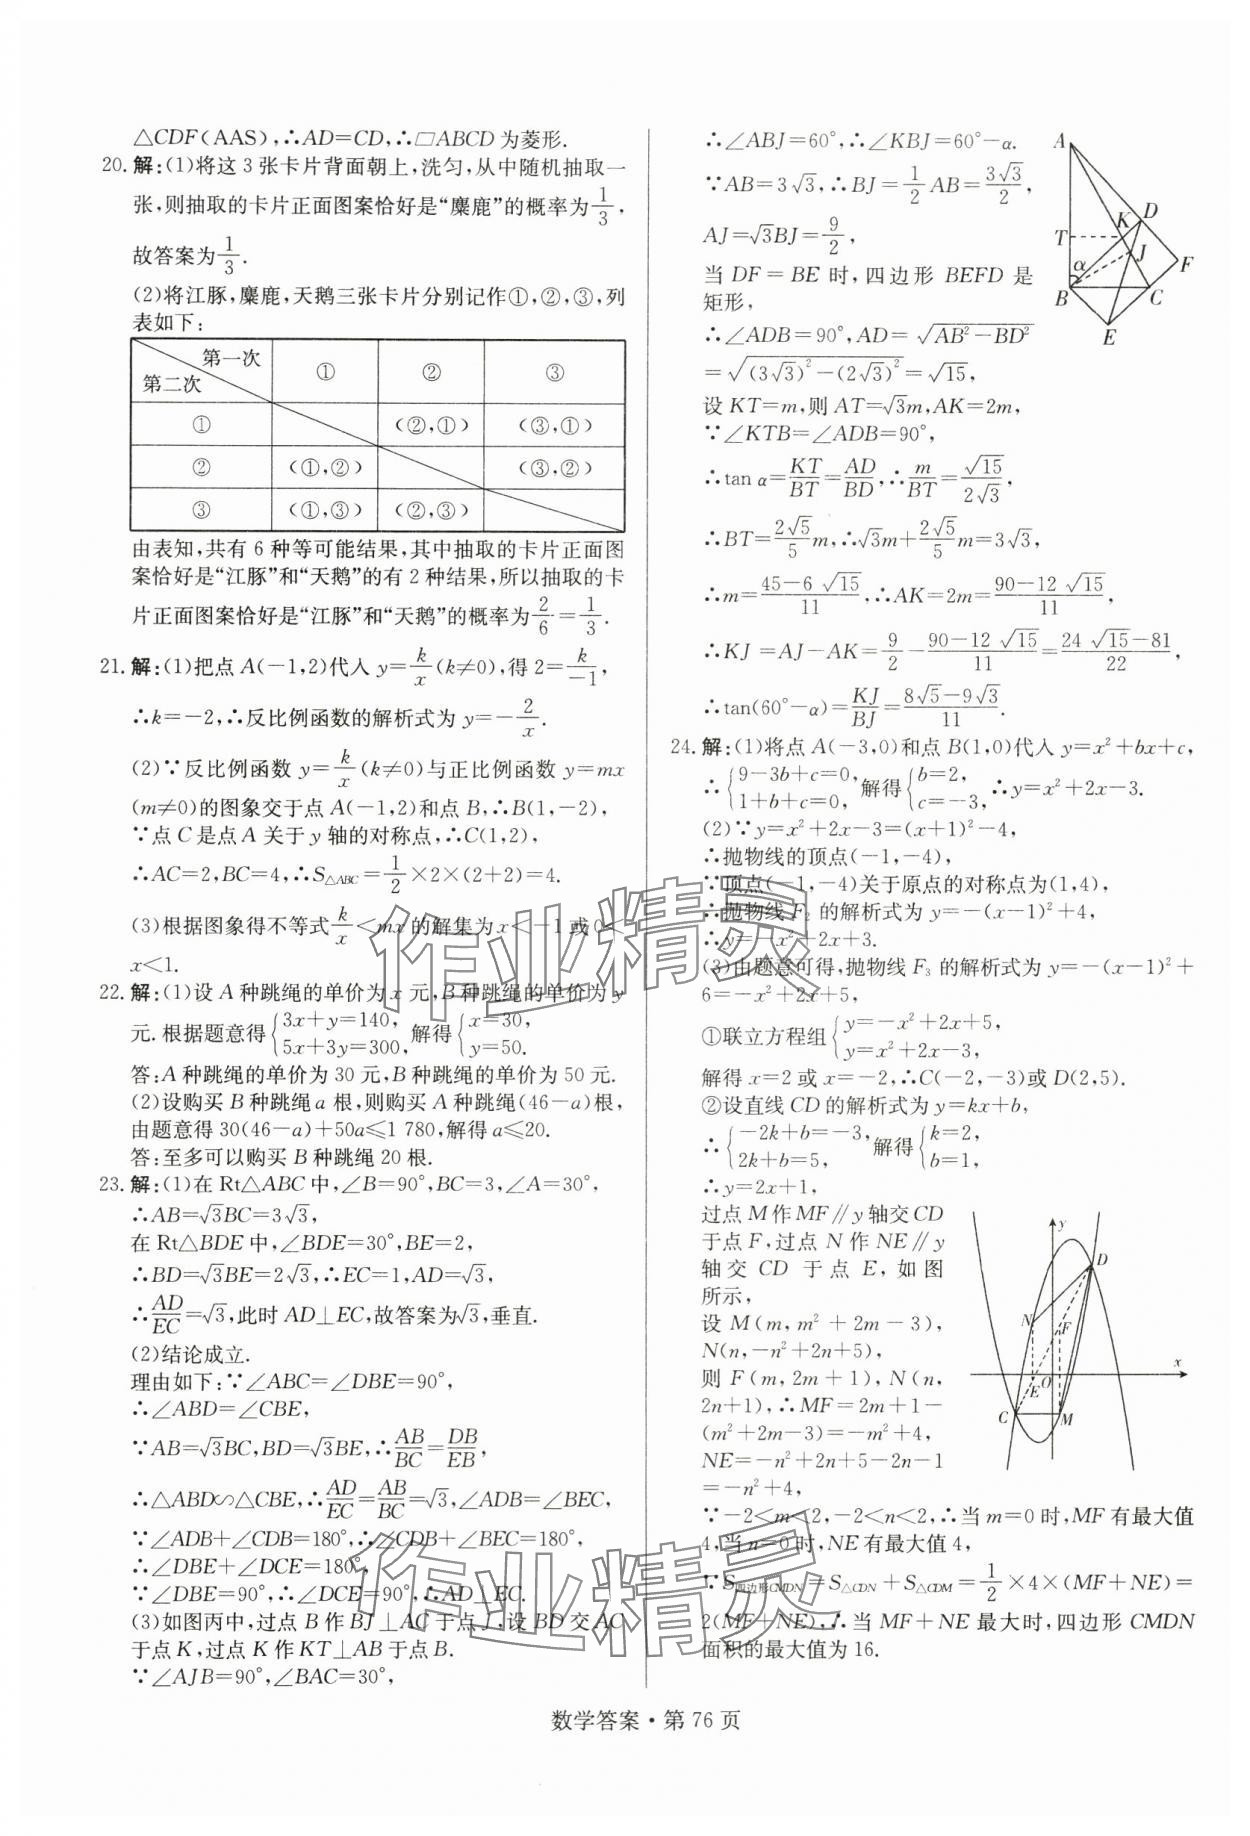 △CDF(AAS),∴AD=CD,∴□ABCD 为菱形.
20. 解:(1)将这 3 张卡片背面朝上,洗匀,从中随机抽取一
张,则抽取的卡片正面图案恰好是“麋鹿”的概率为1/3,
故答案为1/3.
(2)将江豚,麋鹿,天鹅三张卡片分别记作①,②,③,列
表如下:
第一次
第二次
① ② ③
① (②,①) (③,①)
② (①,②) (③,②)
③ (①,③) (②,③)
由表知,共有 6 种等可能结果,其中抽取的卡片正面图
案恰好是“江豚”和“天鹅”的有 2 种结果,所以抽取的卡
片正面图案恰好是“江豚”和“天鹅”的概率为2/6=1/3.
21. 解:(1)把点 A(-1,2)代入 y=k/x(k≠0),得 2=k/-1,
∴k=-2,∴反比例函数的解析式为 y=-2/x.
(2)∵反比例函数 y=k/x(k≠0)与正比例函数 y=mx
(m≠0)的图象交于点 A(-1,2)和点 B,∴B(1,-2),
∵点 C 是点 A 关于 y 轴的对称点,∴C(1,2),
∴AC=2,BC=4,∴S△ABC=1/2×2×(2+2)=4.
(3)根据图象得不等式k/x<mx的解集为 x<-1 或 0<
x<1.
22. 解:(1)设 A 种跳绳的单价为 x 元,B 种跳绳的单价为 y
元.根据题意得{3x+y=140, 5x+3y=300, 解得{x=30, y=50.
答:A 种跳绳的单价为 30 元,B 种跳绳的单价为 50 元.
(2)设购买 B 种跳绳 a 根,则购买 A 种跳绳(46-a)根,
由题意得 30(46-a)+50a≤1 780,解得 a≤20.
答:至多可以购买 B 种跳绳 20 根.
23. 解:(1)在 Rt△ABC 中,∠B=90°,BC=3,∠A=30°,
∴AB=√3BC=3√3,
在 Rt△BDE 中,∠BDE=30°,BE=2,
∴BD=√3BE=2√3,∴EC=1,AD=√3,
∴AD/EC=√3,此时 AD⊥EC,故答案为√3,垂直.
(2)结论成立.
理由如下:∵∠ABC=∠DBE=90°,
∴∠ABD=∠CBE,
∵AB=√3BC,BD=√3BE,∴AB/BC=DB/EB,
∴△ABD∽△CBE,∴AD/EC=AB/BC=√3,∠ADB=∠BEC,
∵∠ADB+∠CDB=180°,∴∠CDB+∠BEC=180°,
∴∠DBE+∠DCE=180°,
∵∠DBE=90°,∴∠DCE=90°,∴AD⊥EC.
(3)如图丙中,过点 B 作 BJ⊥AC 于点 J,设 BD 交 AC
于点 K,过点 K 作 KT⊥AB 于点 B.
∵∠AJB=90°,∠BAC=30°,
∴∠ABJ=60°,∴∠KBJ=60°-α.
∵AB=3√3,∴BJ=1/2 AB=3√3/2,
AJ=√3BJ=9/2,
当 DF=BE 时,四边形 BEFD 是
矩形,
∴∠ADB=90°,AD=√(AB²-BD²)
=√((3√3)²-(2√3)²)=√15,
设 KT=m,则 AT=√3m,AK=2m,
∵∠KTB=∠ADB=90°,
∴tan α=KT/BT=AD/BD,∴m/BT=√15/2√3,
∴BT=2√5/5 m,∴√3m+2√5/5 m=3√3,
∴m=(45-6√15)/11,∴AK=2m=(90-12√15)/11,
∴KJ=AJ-AK=9/2-(90-12√15)/11=(24√15-81)/22,
∴tan(60°-α)=KJ/BJ=(8√5-9√3)/11.
A
T
K
D
J
F
α
B
C
E
24. 解:(1)将点 A(-3,0)和点 B(1,0)代入 y=x²+bx+c,
∴{9-3b+c=0, 1+b+c=0, 解得{b=2, c=-3, ∴y=x²+2x-3.
(2)∵y=x²+2x-3=(x+1)²-4,
∴抛物线的顶点(-1,-4),
∵顶点(-1,-4)关于原点的对称点为(1,4),
∴抛物线 F₂ 的解析式为 y=-(x-1)²+4,
∴y=-x²+2x+3.
(3)由题意可得,抛物线 F₃ 的解析式为 y=-(x-1)²+
6=-x²+2x+5,
①联立方程组{y=-x²+2x+5, y=x²+2x-3,
解得 x=2 或 x=-2,∴C(-2,-3)或 D(2,5).
②设直线 CD 的解析式为 y=kx+b,
∴{-2k+b=-3, 2k+b=5, 解得{k=2, b=1,
∴y=2x+1,
过点 M 作 MF∥y 轴交 CD
于点 F,过点 N 作 NE∥y
轴交 CD 于点 E,如图
所示,
设 M(m,m²+2m-3),
N(n,-n²+2n+5),
则 F(m,2m+1),N(n,
2n+1),∴MF=2m+1-
(m²+2m-3)=-m²+4,
NE=-n²+2n+5-2n-1
=-n²+4,
∵-2<m<2,-2<n<2,∴当 m=0 时,MF 有最大值
4,当 n=0 时,NE 有最大值 4,
∵S四边形CMDN=S△CDN+S△CDM=1/2×4×(MF+NE)=
2(MF+NE),∴当 MF+NE 最大时,四边形 CMDN
面积的最大值为 16.
y
D
N
F
x
E
O
C
M
作业精灵
作业精灵
数学答案·第 76 页